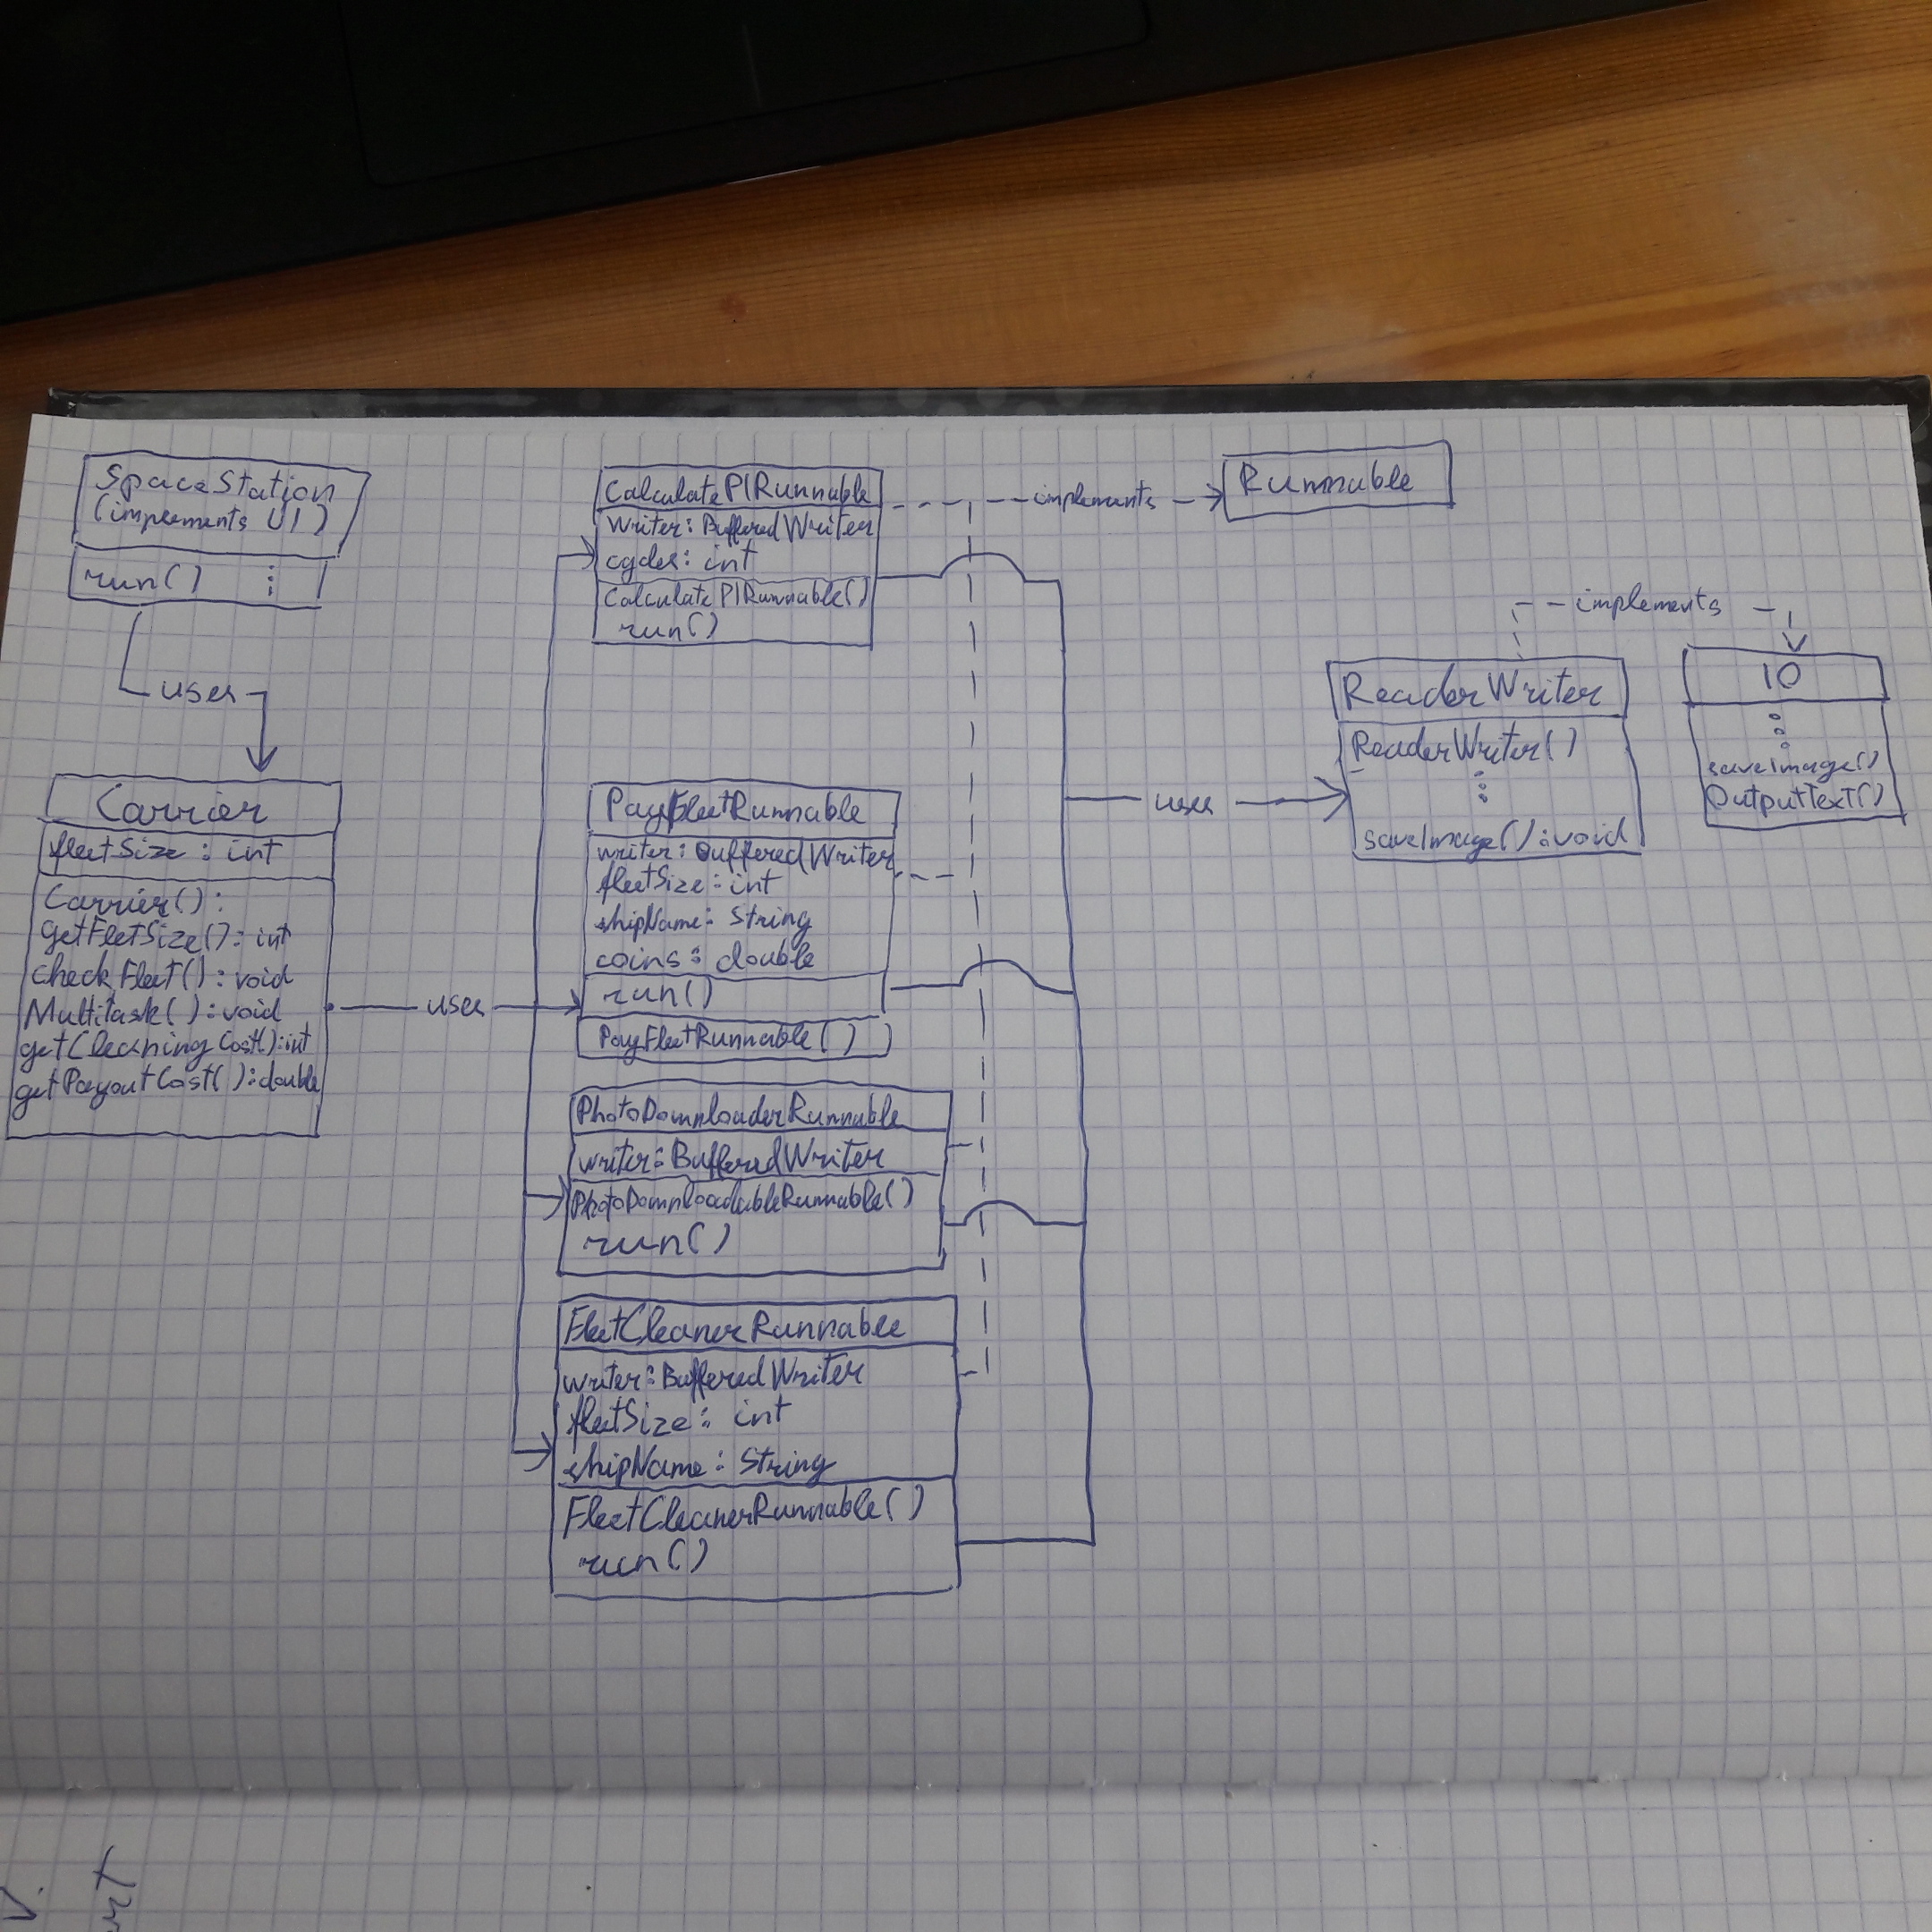 SpaceStation
(implements UI)
run() ⋮
uses
Carrier
fleetSize : int
Carrier() :
getFleetSize() : int
checkFleet() : void
Multitask( ) : void
getCleaningCost() : int
getPayoutCost( ) : double
uses
CalculatePIRunnable
writer : BufferedWriter
cycles : int
CalculatePIRunnable()
run()
PayFleetRunnable
writer : BufferedWriter
fleetSize : int
shipName : String
coins : double
run()
PayFleetRunnable( )
PhotoDownloaderRunnable
writer : BufferedWriter
PhotoDownloadableRunnable()
run()
FleetCleanerRunnable
writer : BufferedWriter
fleetSize : int
shipName : String
FleetCleanerRunnable( )
run()
implements
Runnable
uses
ReaderWriter
ReaderWriter()
⋮
saveImage() : void
implements
IO
⋮
saveImage()
OutputText()